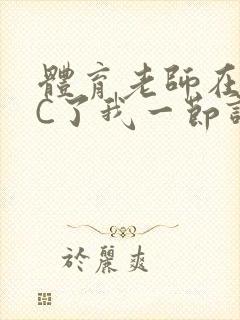 體育老師在
C了我一節
於麗爽